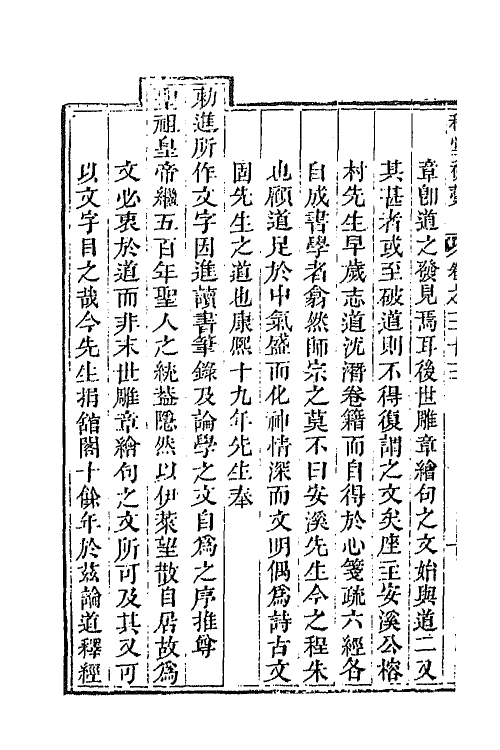 章卽道之發見焉耳後世雕章繪句之文始與道二又
其甚者或至破道則不得復謂之文矣座主安溪公榕
村先生早歲志道沈潛卷籍而自得於心箋疏六經各
自成書學者翕然師宗之莫不曰安溪先生今之程朱
也顧道足於中氣盛而化神情深而文明偶爲詩古文
固先生之道也康熙十九年先生奉
勅進所作文字因進讀書筆錄及論學之文自爲之序推尊
聖祖皇帝繼五百年聖人之統益隱然以伊萊望散自居故爲
文必衷於道而非末世雕章繪句之文所可及其又可
以文字目之哉今先生捐館閣十餘年於兹論道釋經